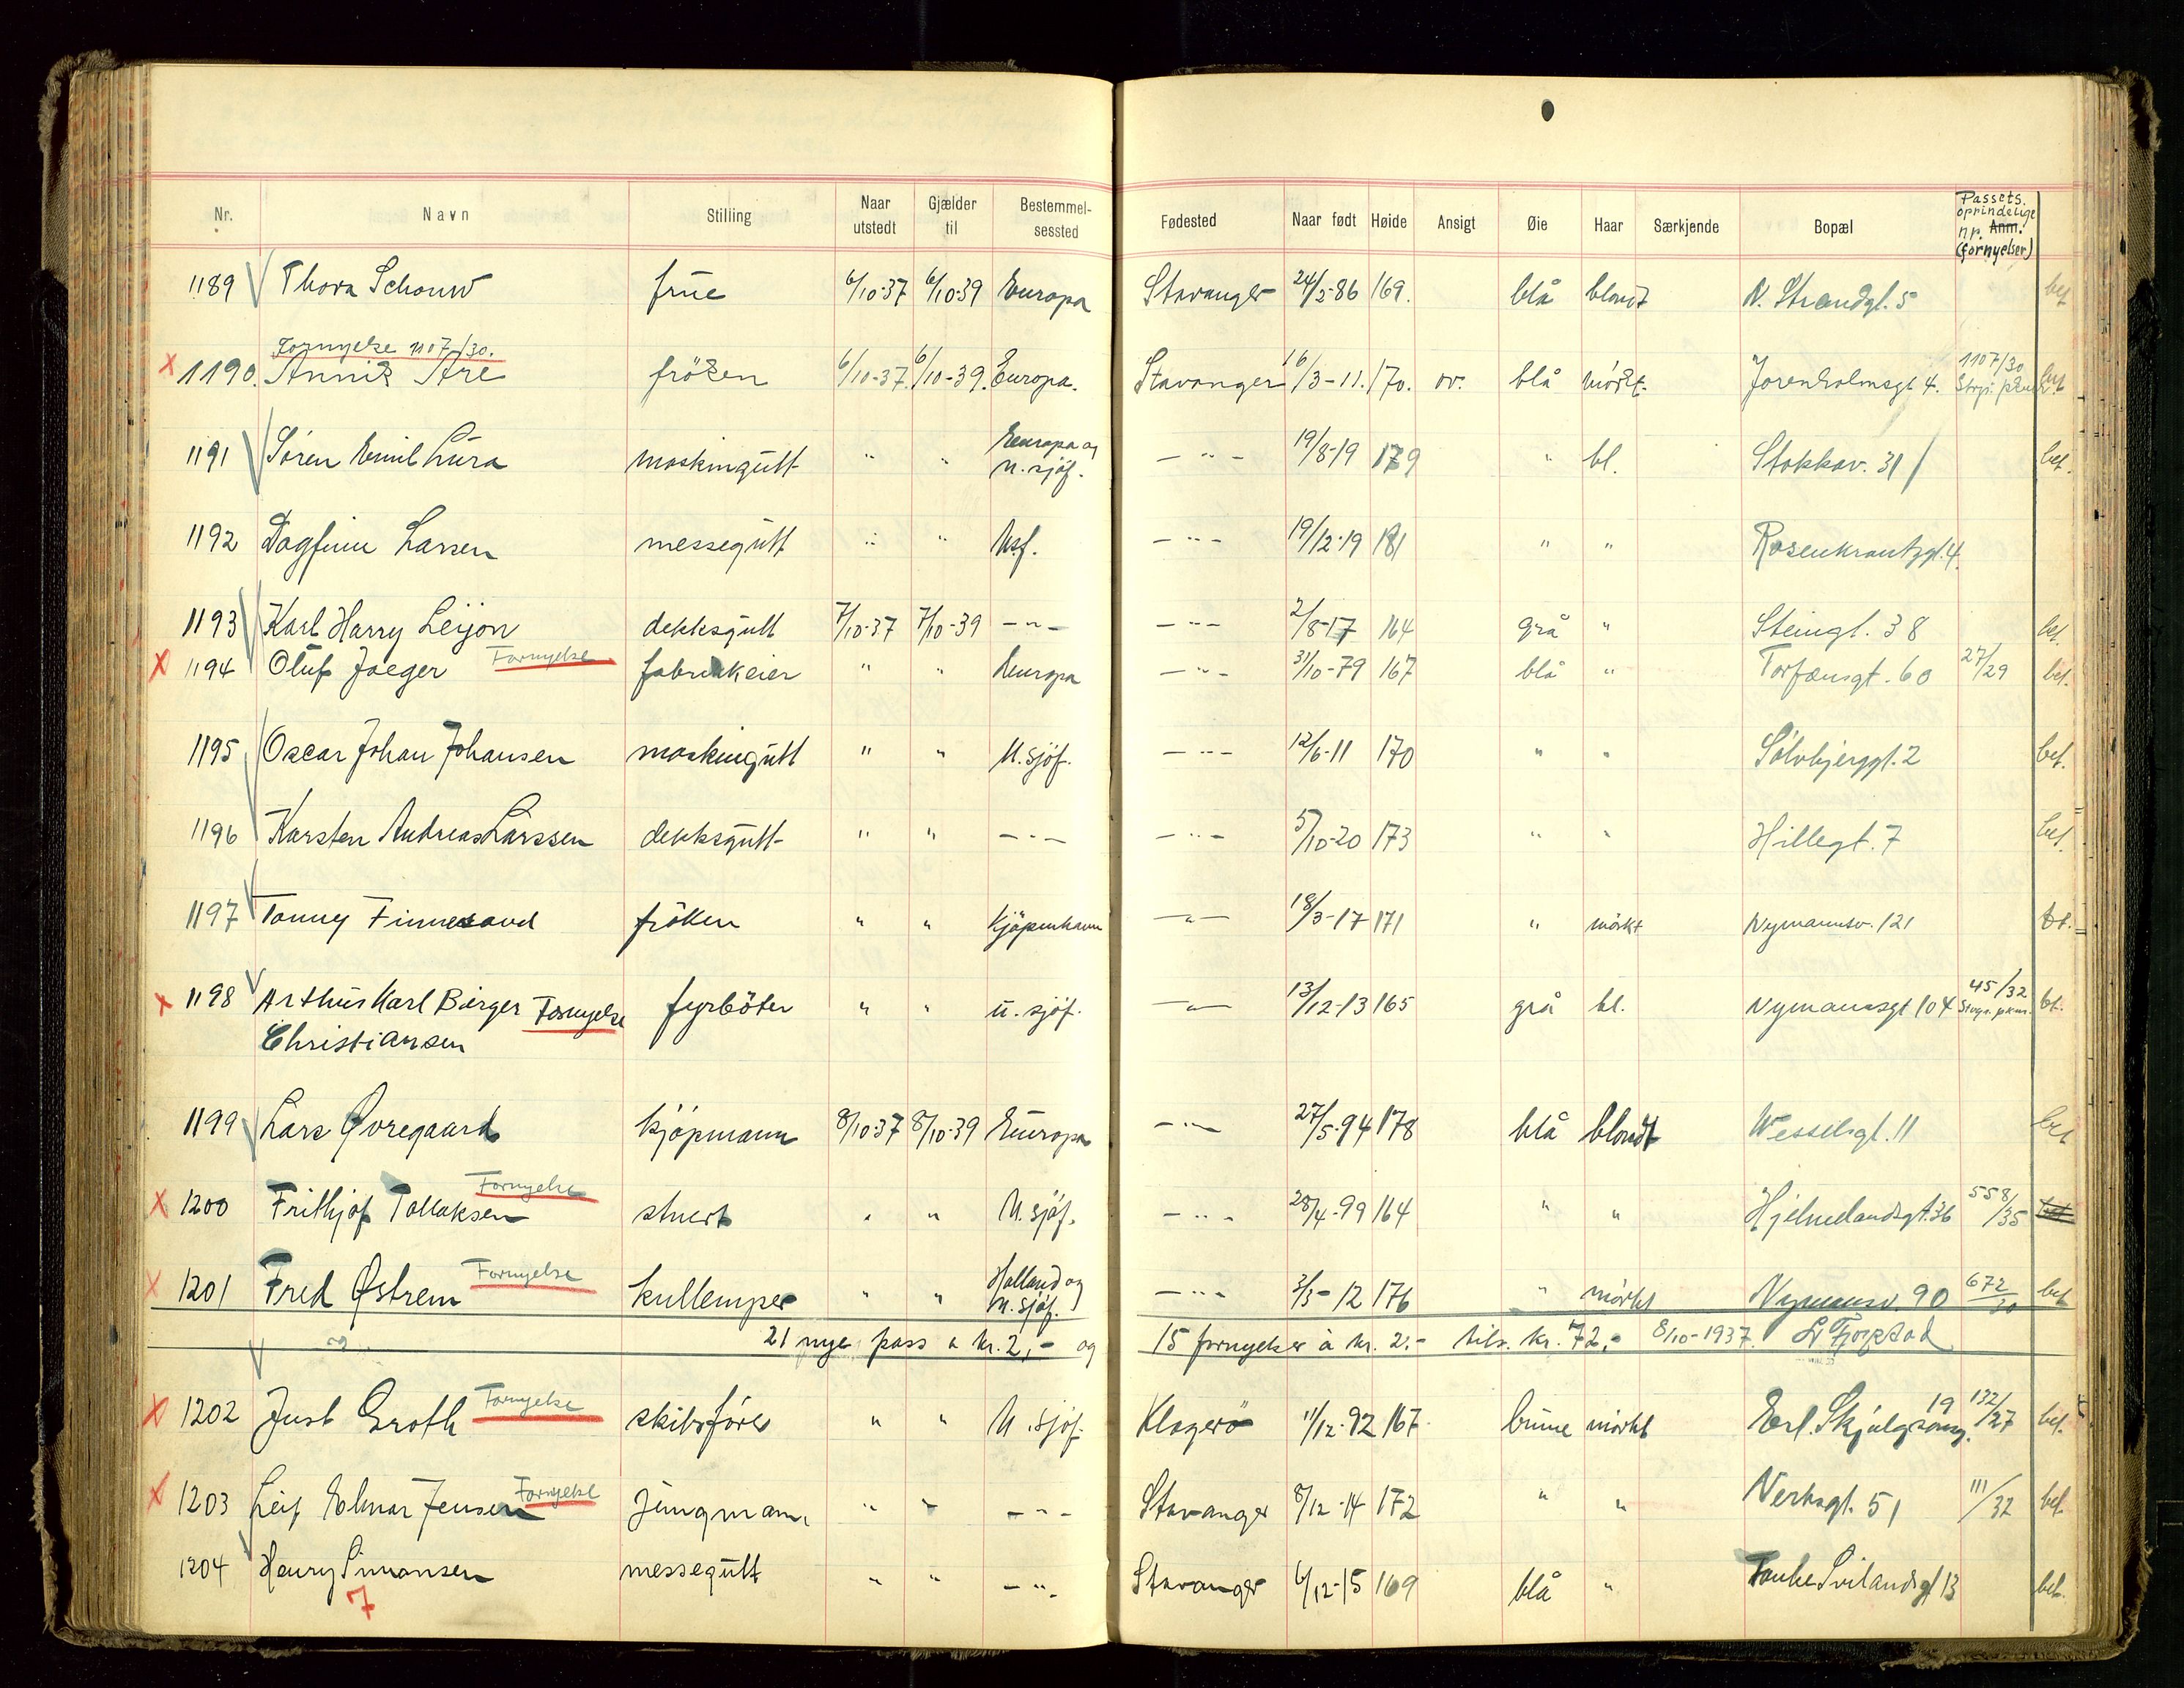 Nr. Navn Stilling Naar utstedt Gjælder til Bestemmelsessted Fødested Naar født Høide Ansigt Øie Haar Særkjende Bopæl Passets oprindelige nr. Anm. (fornyelser)
1189 Thora Schouw frue 6/10-37 6/10-39 Europa Stavanger 24/5-86 169. blå blondt N. Strandgt. 5 bet
Fornyelse 1107/30.
x 1190. Annik Are fröken 6/10-37. 6/10-39. Europa. Stavanger 16/3-11. 170. ov. blå mörkt. Jorenholmsgt 4. 1107/30 bet
1191 Sören Emil Lura maskingutt " " Europa og u. sjöf. — " — 19/8-19 179 " bl. Stokkav. 31 bet.
1192 Dagfinn Larsen messegutt " " Usf. — " — 19/12-19 181 " " Rosenkrantzgt. 4.
1193 Karl Harry Leijon dekksgutt 7/10-37 7/10-39 — " — — " — 2/8-17 164 grå " Steingt. 38 bet.
x 1194 Oluf Jaeger Fornyelse fabrikkeier " " Europa — " — 31/10-79 167 blå " Torfæusgt. 60 27/29 bet.
1195 Oscar Johan Johansen maskingutt " " U. sjöf. — " — 12/6-11 170 " " Sölvbjerggt. 2 bet.
1196 Karsten Andreas Larssen dekksgutt " " — " — — " — 5/10-20 173 " " Hillegt. 7 bet.
1197 Tonny Finnesand fröken " " Kjöpenhavn — " — 18/3-17 171 " mörkt Nymannsv. 121 bt.
x 1198 Arthur Karl Birger Fornyelse fyrböter " " u. sjöf. — " — 13/12-13 165 grå bl. Nymannsgt 104 45/32 Stvgr. pkm. bt.
Christiansen
1199 Lars Øvregaard kjöpmann 8/10-37 8/10-39 Europa — " — 27/5-94 178 blå blondt Wesselsgt. 11 bet
x 1200 Frithjof Tollaksen Fornyelse stuert " " U. sjöf. — " — 28/4-99 164 " " Hjelmelandsgt. 36 558/35 bet.
x 1201 Fred Østrem Fornyelse kullemper " " Holland og u. sjöf. — " — 3/5-12 176 " mörkt Nymannsv. 90 672/30 bet
og 21 nye pass a kr. 2,- og 15 fornyelser à kr. 2.- tils. kr. 72,- 8/10-1937.
x 1202 Just Groth Fornyelse skibsförer " " U. sjöf. Kragerö 11/12-92 167 brune mörkt Erl. Skjalgsonsg. 19 132/27 bet.
x 1203 Leif Elmar Jensen Fornyelse jungmann " " — " — Stavanger 8/12-14 172 " " Verksgt. 51 111/32 bet.
1204 Henry Simonsen messegutt " " — " — Stavanger 6/12-15 169 blå " Tanke Svilandsgt 13 bet.
7